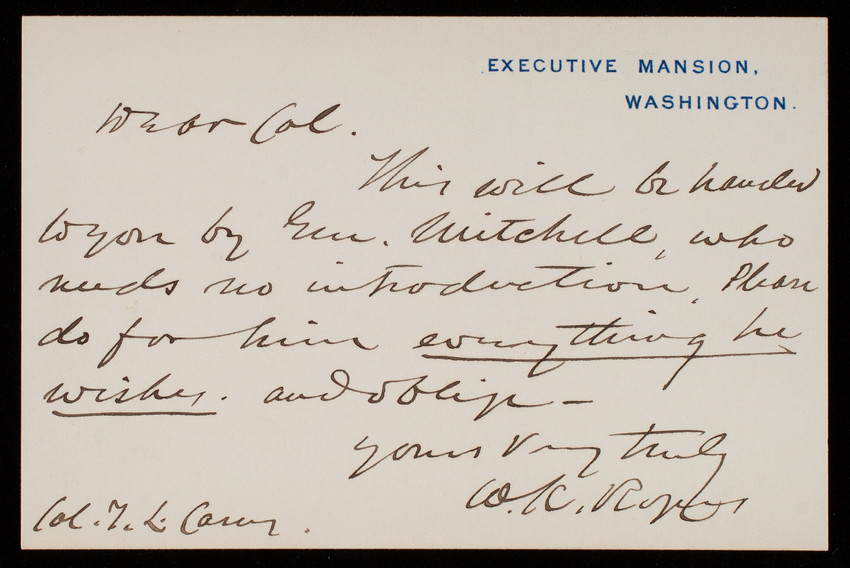 EXECUTIVE MANSION,
WASHINGTON.
Dear Col.
This will be handed
to you by Gen. Mitchell, who
needs no introduction. Please
do for him everything he
wishes. and oblige—
yours very truly
W. K. Rogers
Col. T. L. Casey.